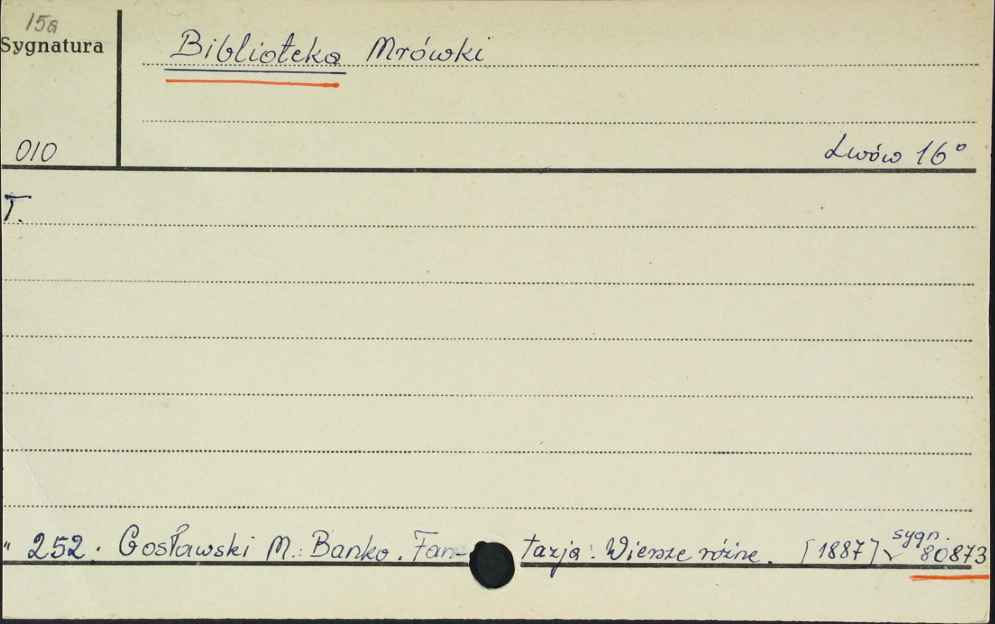 15a
Sygnatura
Biblioteka Mrówki
010
Lwów 16°
T.
" 252. Gosławski M.: Banko. Fan- tazja. Wiersze różne. [1887] sygn. 80873